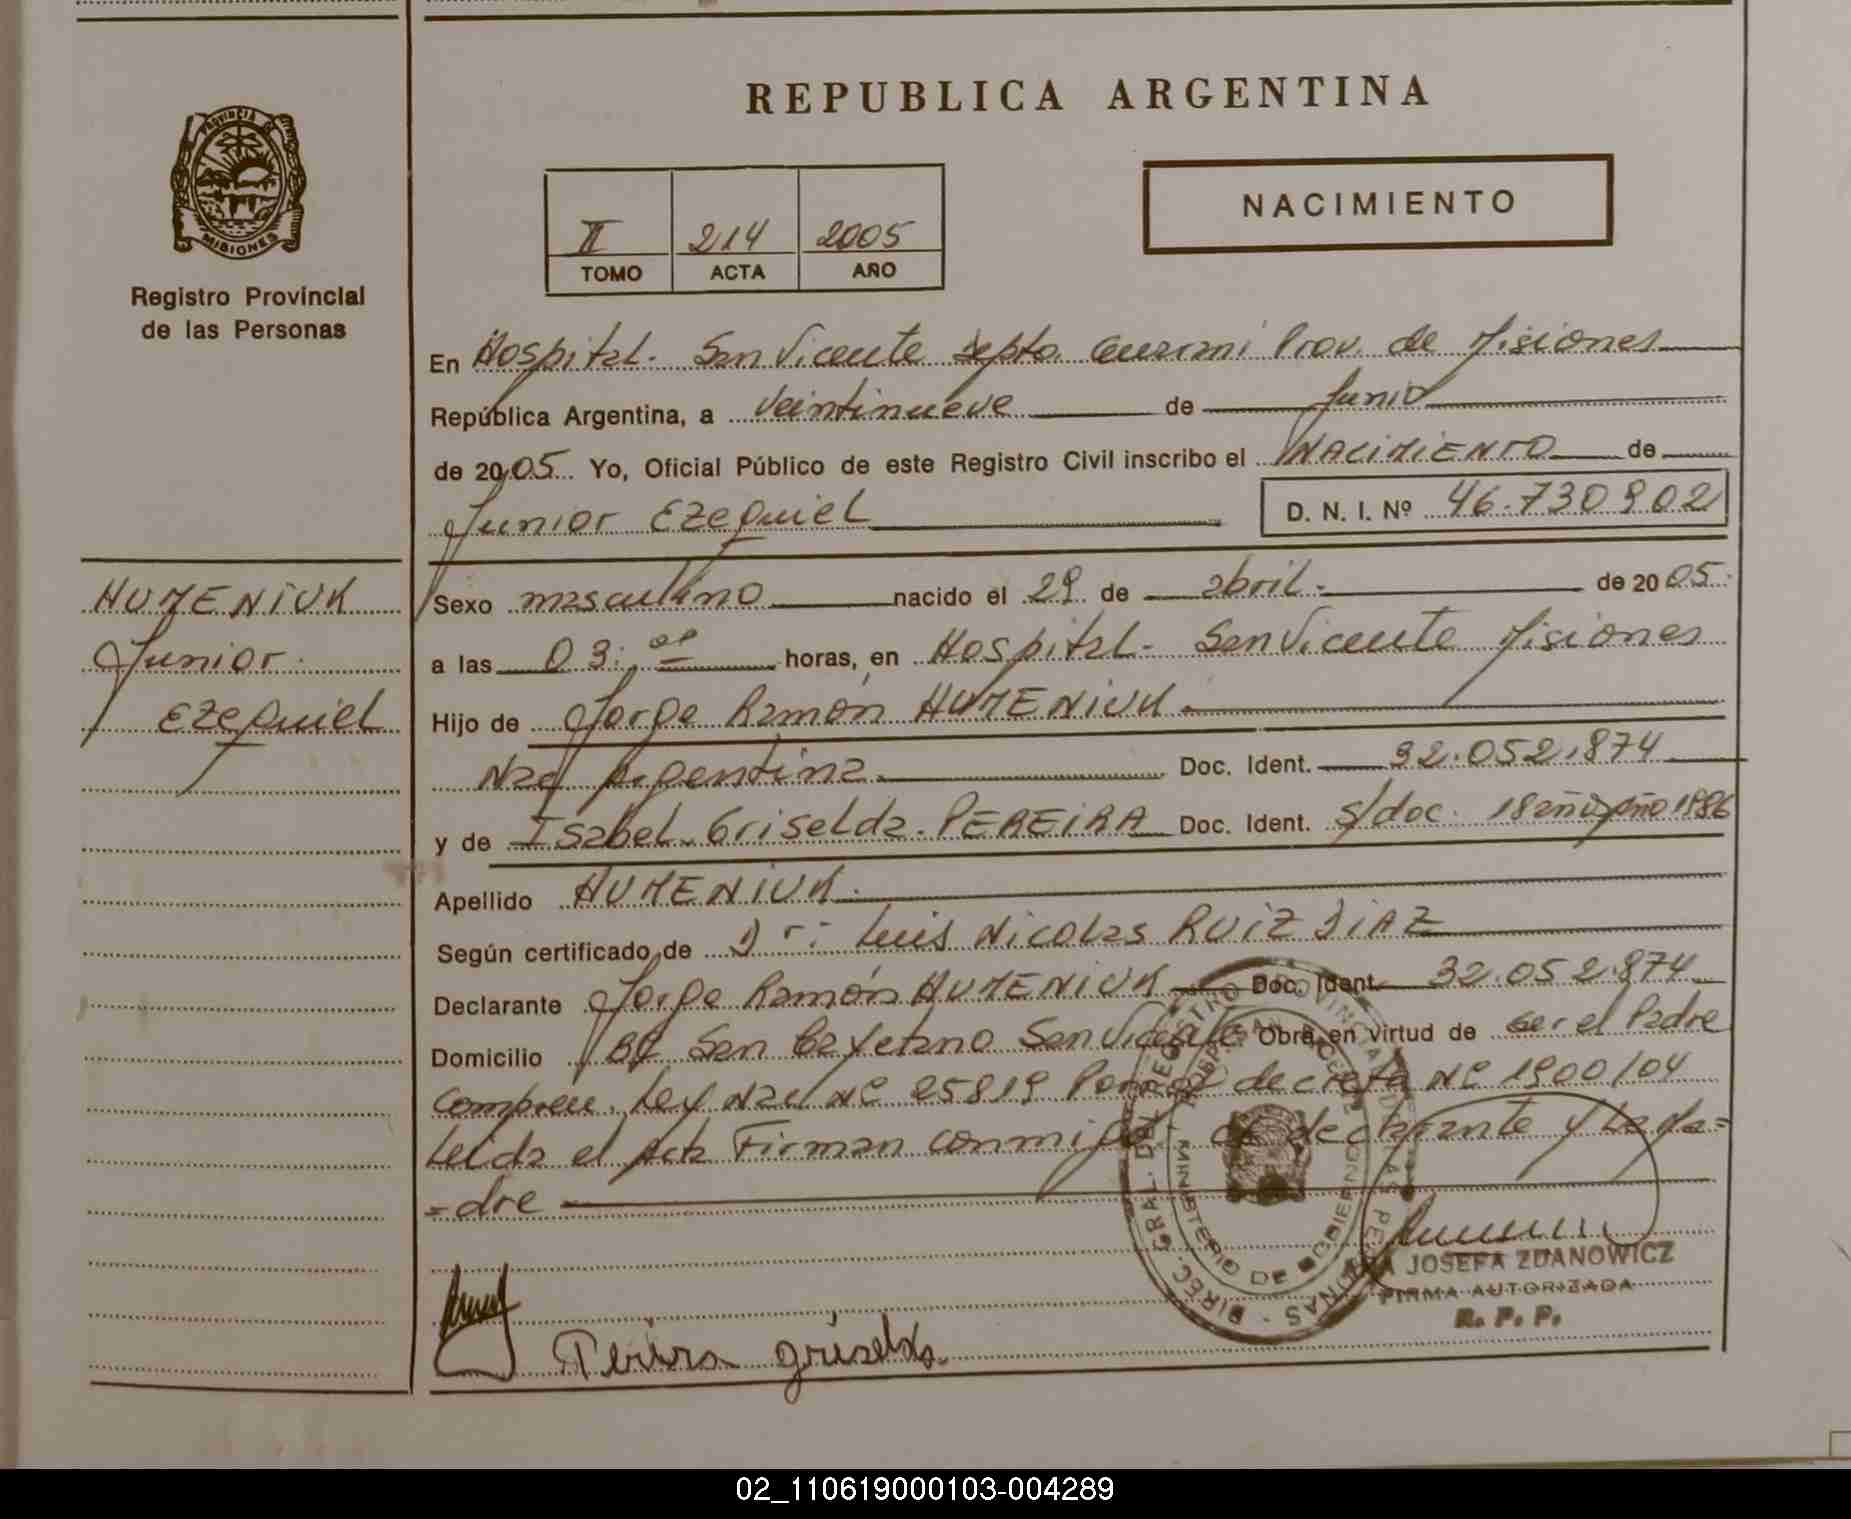 REPUBLICA ARGENTINA
PROVINCIA DE MISIONES
Registro Provincial
de las Personas
II 214 2005
TOMO ACTA AÑO
NACIMIENTO
En Hospital. San Vicente Depto. Guaraní Prov. de Misiones
República Argentina, a veintinueve de Junio
de 2005 Yo, Oficial Público de este Registro Civil inscribo el NACIMIENTO de
Junior Ezequiel D. N. I. Nº 46.730902
HUMENIUK
Junior
Ezequiel
Sexo masculino nacido el 29 de abril de 2005
a las 03: horas, en Hospital. San Vicente Misiones
Hijo de Jorge Ramón HUMENIUK
Nac Argentina Doc. Ident. 32.052.874
y de Isabel Griselda PEREIRA Doc. Ident. s/doc. 18 años año 1986
Apellido HUMENIUK.
Según certificado de Dr: Luis Nicolas RUIZ DIAZ
Declarante Jorge Ramón HUMENIUK Doc. Ident. 32.052.874
Domicilio San Cayetano San Vicente Obra en virtud de ser el Padre
Ley Nac Nº 25819 decreto Nº 1900/04
Leida el Acta Firman conmigo el declarante y la Ma=
=dre
DIREC. GRAL. DEL REGISTRO PROVINCIAL DE LAS PERSONAS
MINISTERIO DE GOBIERNO
JOSEFA ZDANOWICZ
FIRMA AUTORIZADA
R. P. P.
Pereira griselda.
02_110619000103-004289